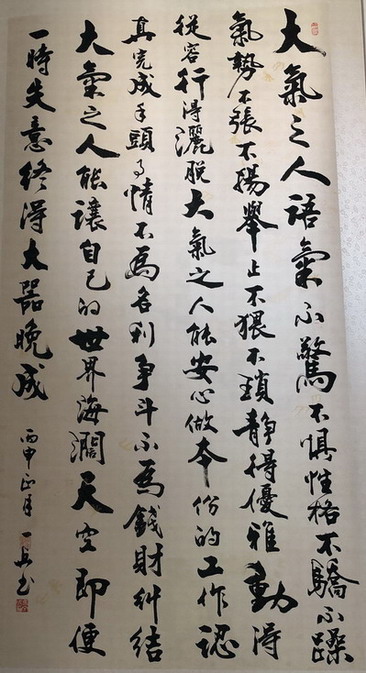 大氣之人語氣不驚不惧性格不驕不躁
氣勢不張不揚舉止不猥不瑣靜得優雅動得
從容行得灑脫大氣之人能安心做本份的工作認
真完成手頭事情不為名利爭斗不為錢財糾結
大氣之人能讓自己的世界海濶天空即便
一時失意終得大器晚成
丙申正月 书